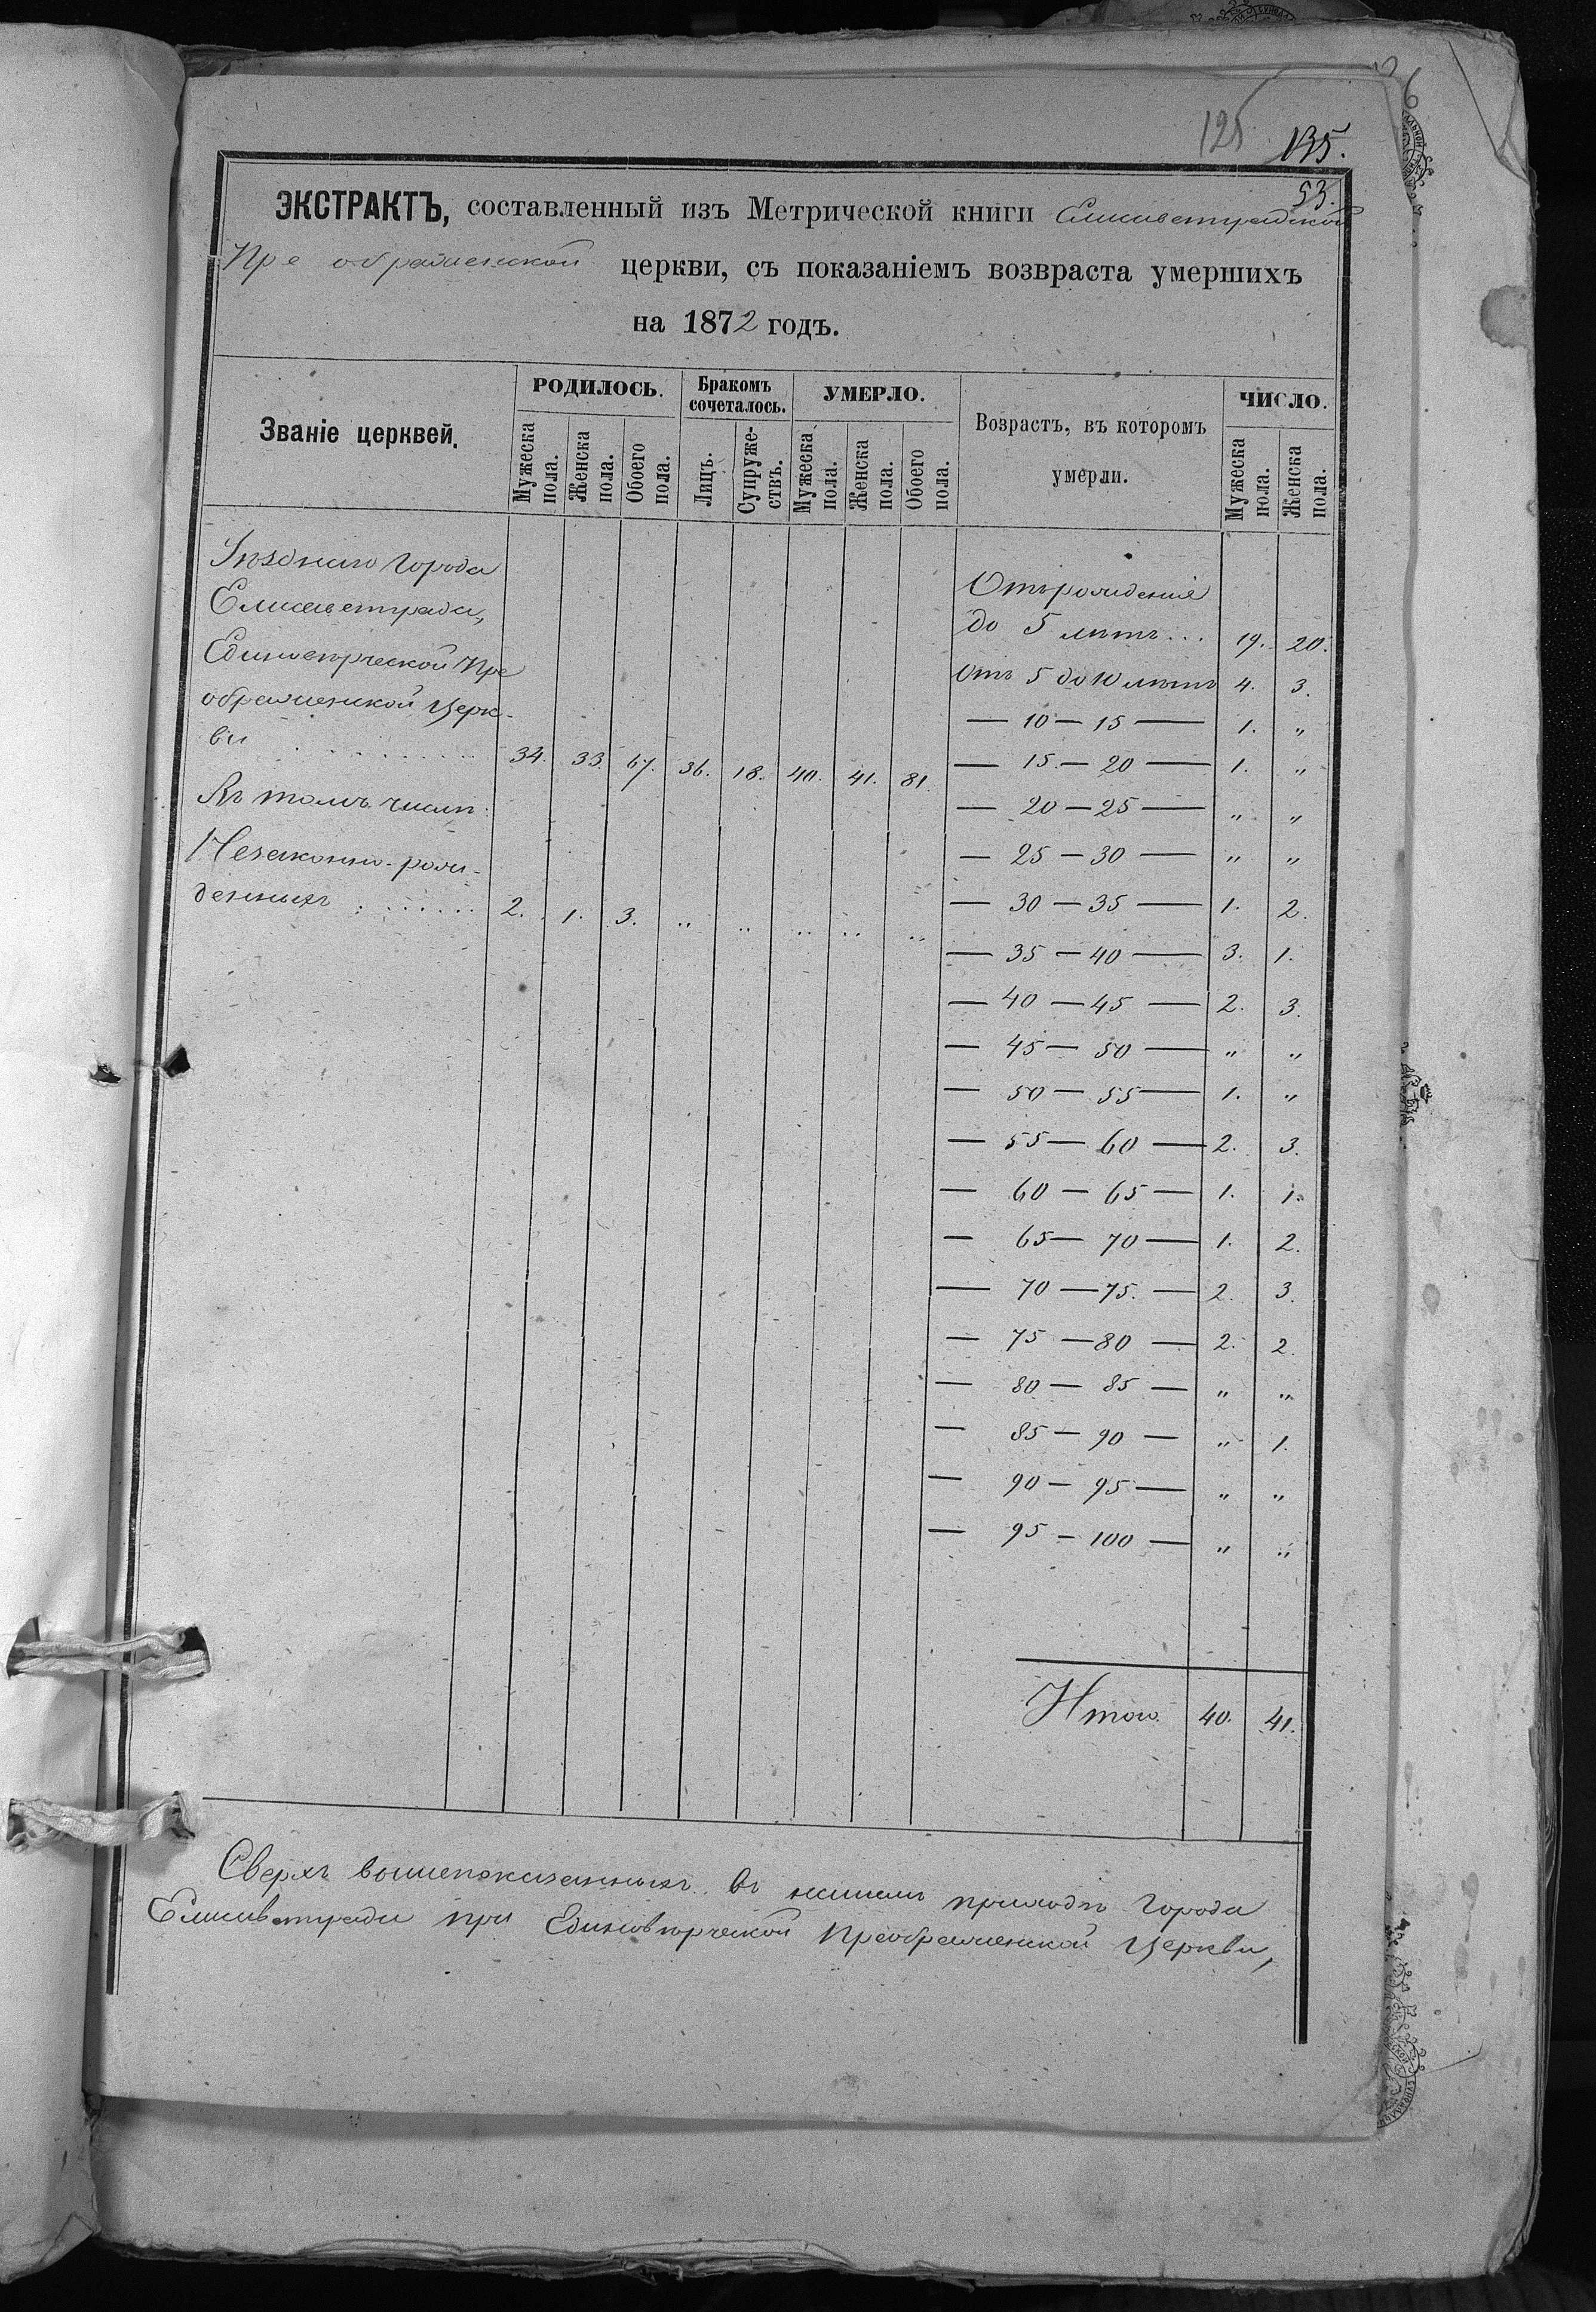 125 135.
53.
ЭКСТРАКТЪ, составленный изъ Метрической книги Елисаветградской
Преображенской церкви, съ показаніемъ возвраста умершихъ
на 1872 годъ.
Званіе церквей. РОДИЛОСЬ. Бракомъ сочеталось. УМЕРЛО. Возрастъ, въ которомъ умерли. ЧИСЛО.
Мужеска пола. Женска пола. Обоего пола. Лицъ. Супружествъ. Мужеска пола. Женска пола. Обоего пола. Мужеска пола. Женска пола.
Уѣзднаго города
Елисаветграда,
Единовѣрческой Пре
ображенской Церк-
ви . . . . . . . . . 34. 33. 67. 36. 18. 40. 41. 81.
Въ томъ числѣ:
Незаконно-рож-
денныхъ . . . . . . . 2. 1. 3. " " " " "
Отъ рожденія
до 5 лѣтъ... 19. 20.
Отъ 5 до 10 лѣтъ 4. 3.
— 10 — 15 — 1. "
— 15 — 20 — 1. "
— 20 — 25 — " "
— 25 — 30 — " "
— 30 — 35 — 1. 2.
— 35 — 40 — 3. 1.
— 40 — 45 — 2. 3.
— 45 — 50 — " "
— 50 — 55 — 1. "
— 55 — 60 — 2. 3.
— 60 — 65 — 1. 1.
— 65 — 70 — 1. 2.
— 70 — 75. — 2. 3.
— 75 — 80 — 2. 2.
— 80 — 85 — " "
— 85 — 90 — " 1.
— 90 — 95 — " "
— 95 — 100 — " "
Итого. 40. 41.
Сверхъ вышепоказанныхъ въ нашемъ приходѣ Города
Елисаветграда при Единовѣрческой Преображенской Церкви,